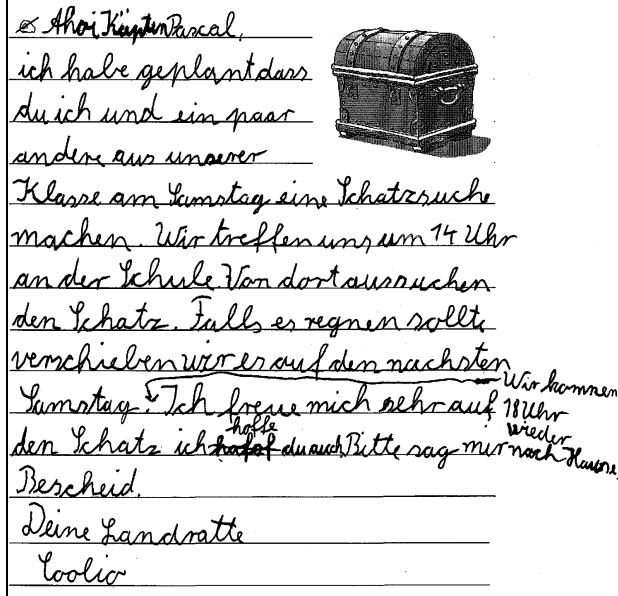 Ahoi Käpten Pascal,
ich habe geplant dass
du ich und ein paar
andere aus unserer
Klasse am Samstag eine Schatzsuche
machen. Wir treffen uns um 14 Uhr
an der Schule. Von dort aus suchen
den Schatz. Falls es regnen sollte
verschieben wir es auf den nachsten
Samstag. Ich freue mich sehr auf
den Schatz ich hoffe du auch. Bitte sag mir
Bescheid.
Deine Landratte
Coolio
Wir kommen
18 Uhr
wieder
nach Hause.